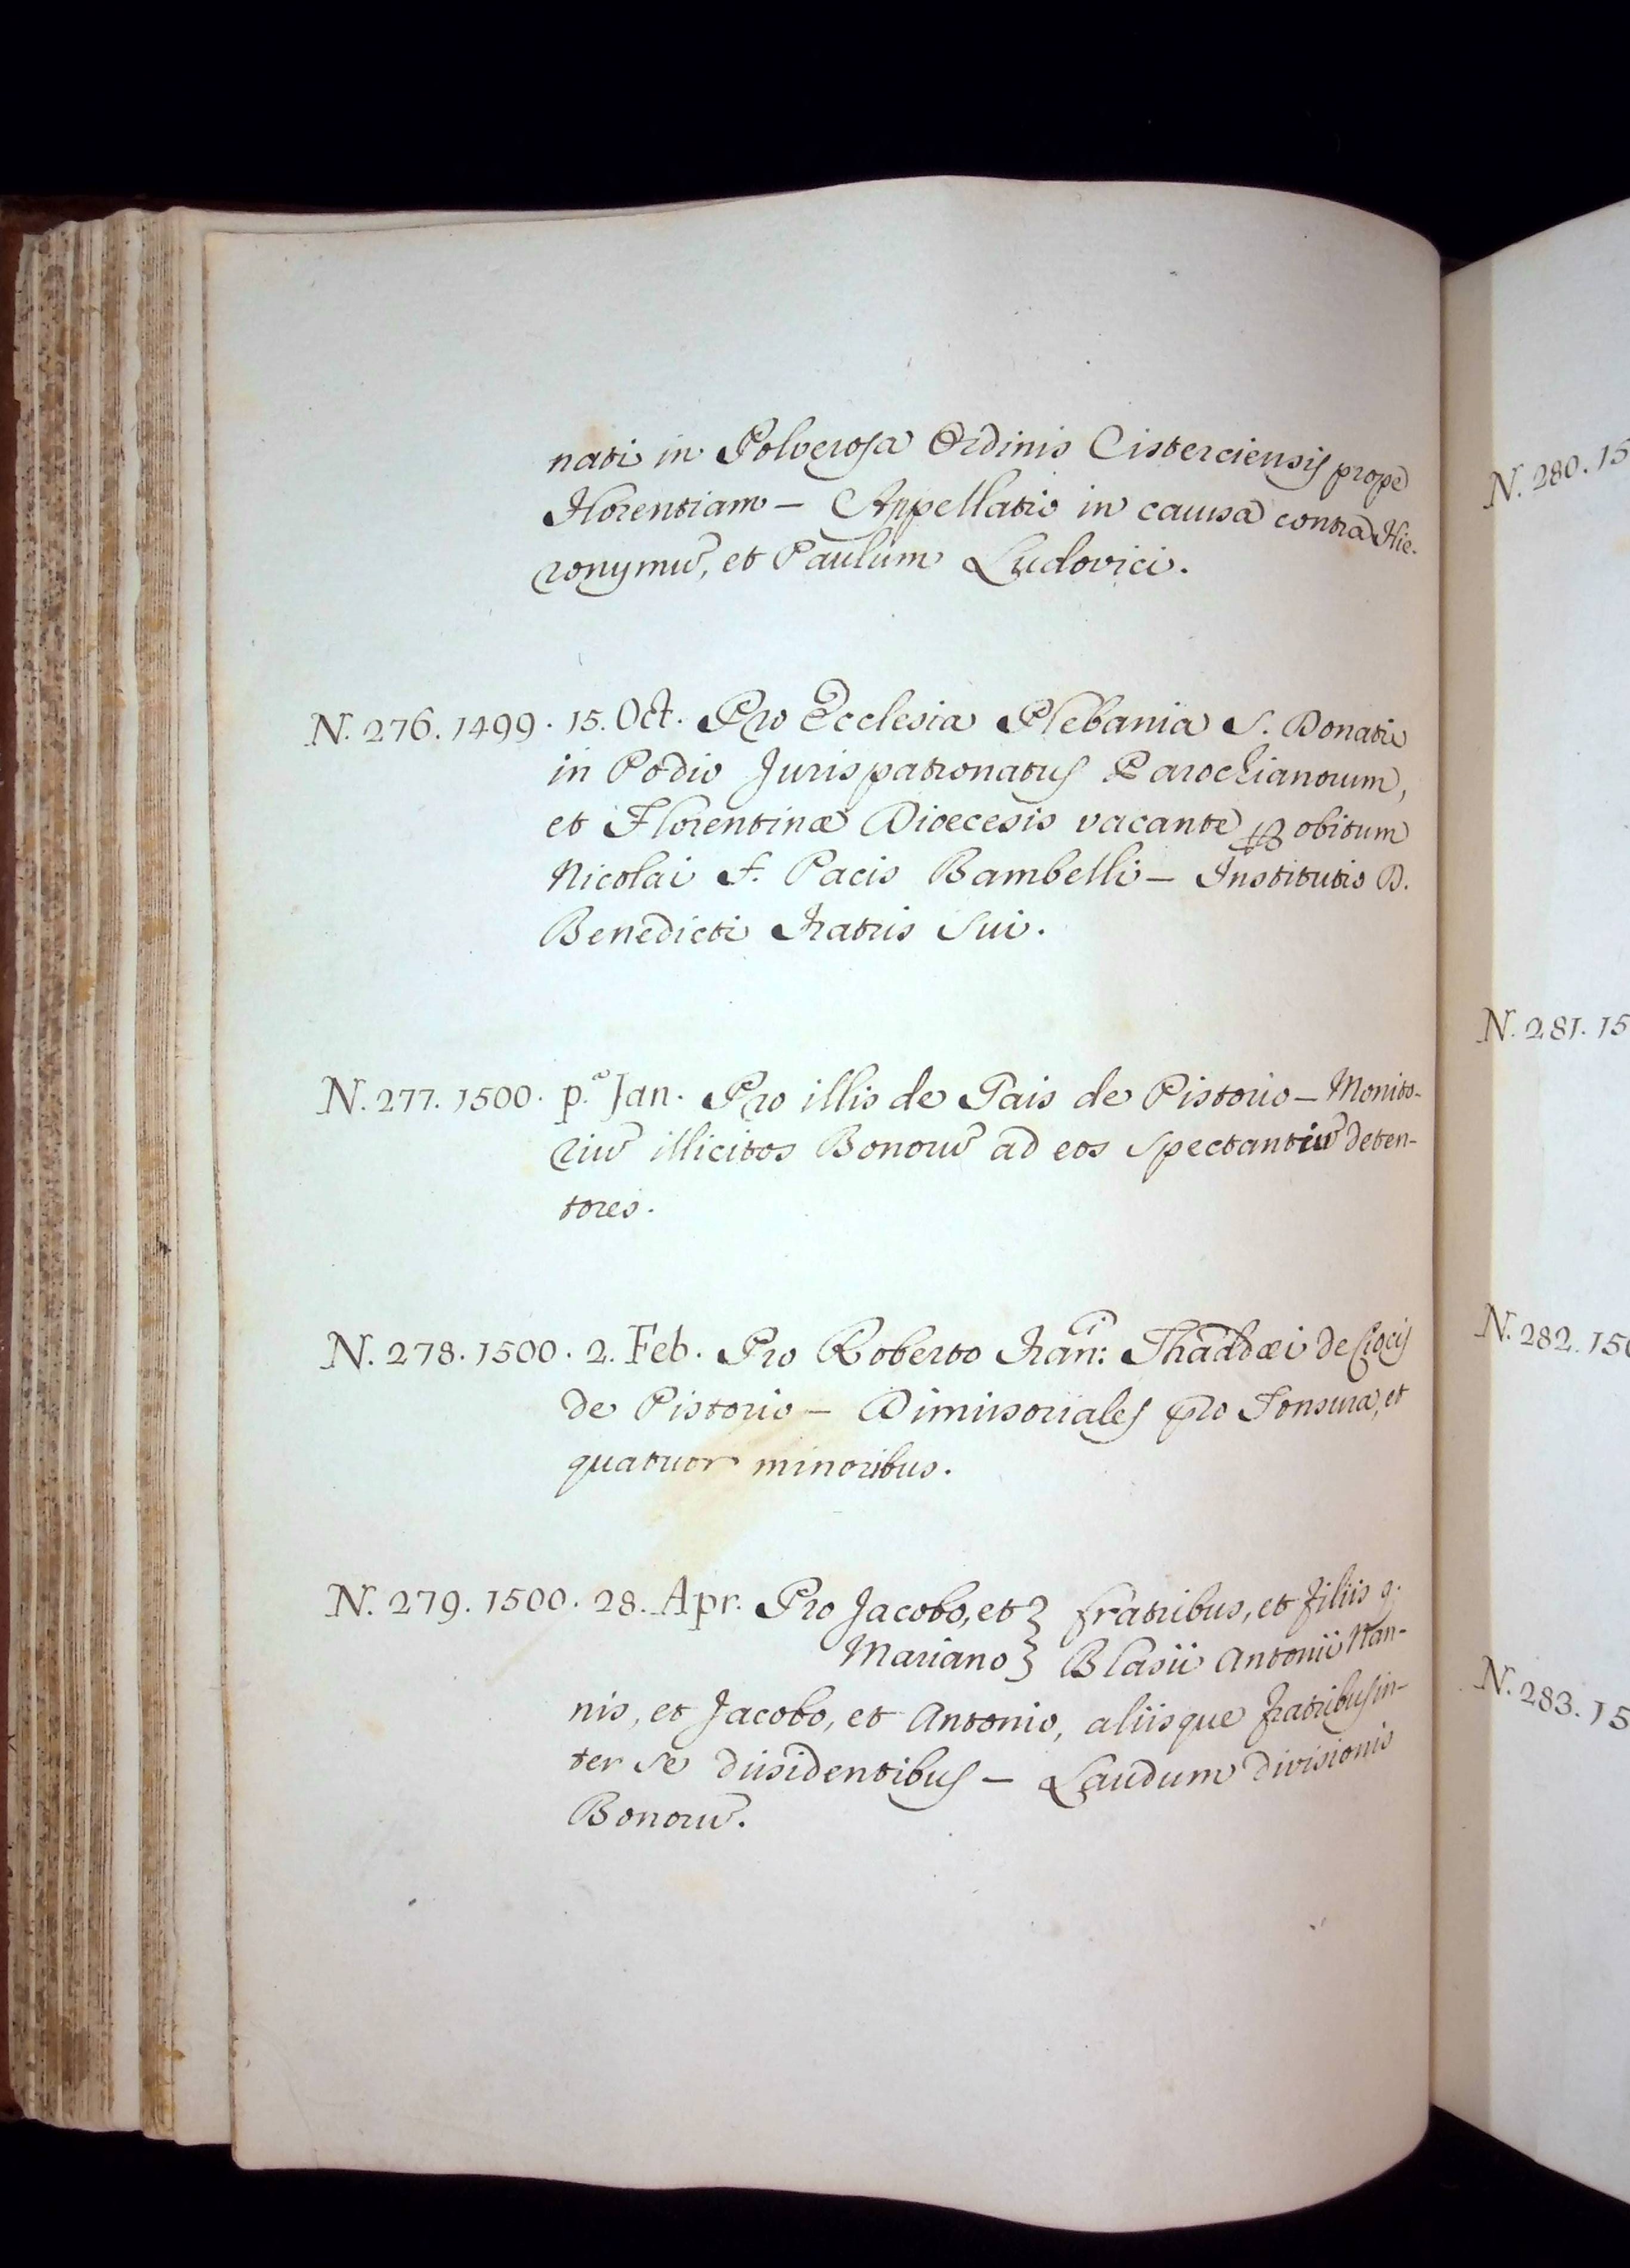 nati in Polverosa Ordinis Cisterciensis prope
Florentiam – Appellatio in causa contra Hie-
ronymū, et Paulum Ludovici.
N. 276. 1499. 15. Oct. Pro Ecclesia Plebania S. Donati
in Podio Jurispatronatus Parochianorum,
et Florentinæ Dioecesis vacante ꝑ obitum
Nicolai f. Pacis Bambelli – Institutio D.
Benedicti Fratris Sui.
N. 277. 1500. p.ª Jan. Pro illis de Pais de Pistorio – Monito-
riū illicitos Bonorū ad eos spectantiū deten-
tores.
N. 278. 1500. 2. Feb. Pro Roberto Fran:ⁱ Thaddæi de Ciocis
de Pistorio – Dimissoriales pro Tonsura, et
quatuor minoribus.
N. 279. 1500. 28. Apr. Pro Jacobo, et } fratribus, et filiis q.
Mariano } Blasii Antonii Nan-
nis, et Jacobo, et Antonio, aliisque fratribus in-
ter se dissidentibus – Laudum divisionis
Bonorū.
N. 280. 15
N. 281. 15
N. 282. 150
N. 283. 15